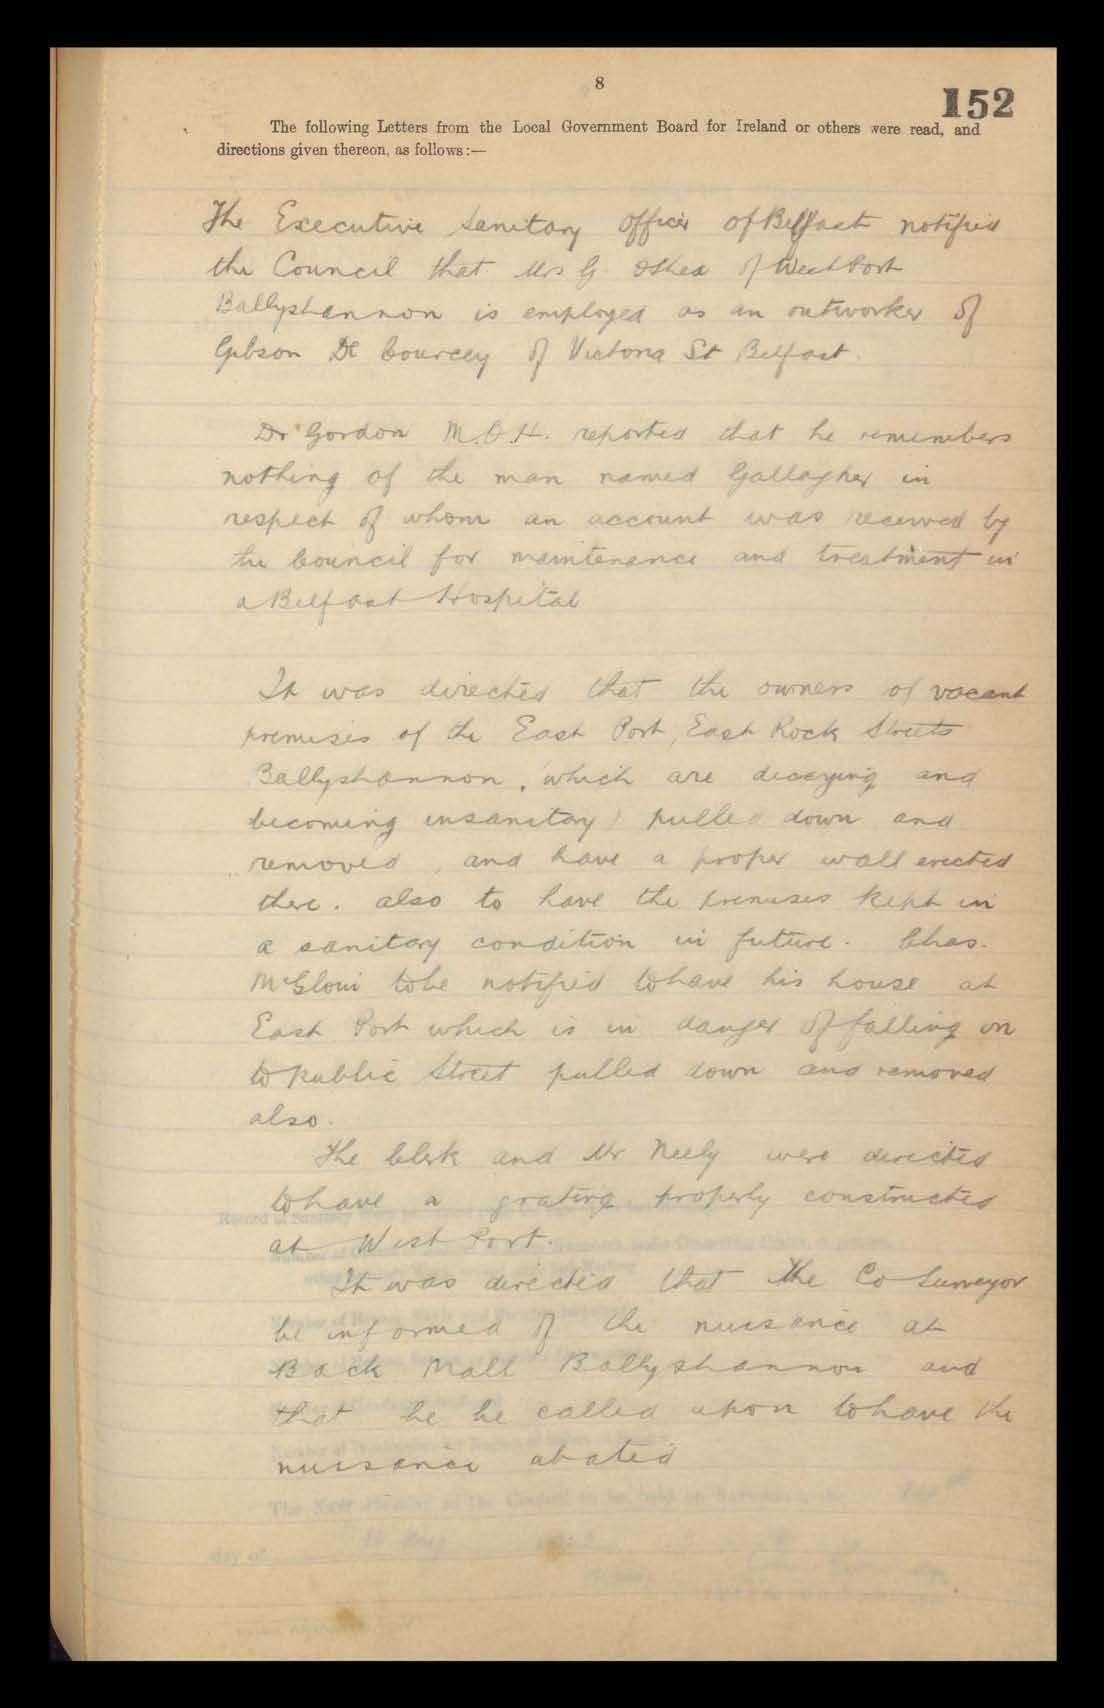 8
152
The following Letters from the Local Government Board for Ireland or others were read, and
directions given thereon, as follows:—
The Executive Sanitary Officer of Belfast notified
the Council that Mrs G OShea of West Port
Ballyshannon is employed as an outworker of
Gibson De Courcey of Victoria St Belfast.
Dr Gordon M.O.H. reported that he remembers
nothing of the man named Gallagher in
respect of whom an account was received by
the Council for maintenance and treatment in
a Belfast Hospital
It was directed that the owners of vacant
premises of the East Port, East Rock Streets
Ballyshannon, which are decaying and
becoming insanitary pulled down and
removed, and have a proper wall erected
there. also to have the premises kept in
a sanitary condition in future. Chas.
McGloin to be notified to have his house at
East Port which is in danger of falling on
to public Street pulled down and removed
also.
The Clerk and Mr Neely were directed
to have a grating properly constructed
at West Port.
It was directed that the Co Surveyor
be informed of the nuisance at
Back Mall Ballyshannon and
that he be called upon to have the
nuisance abated